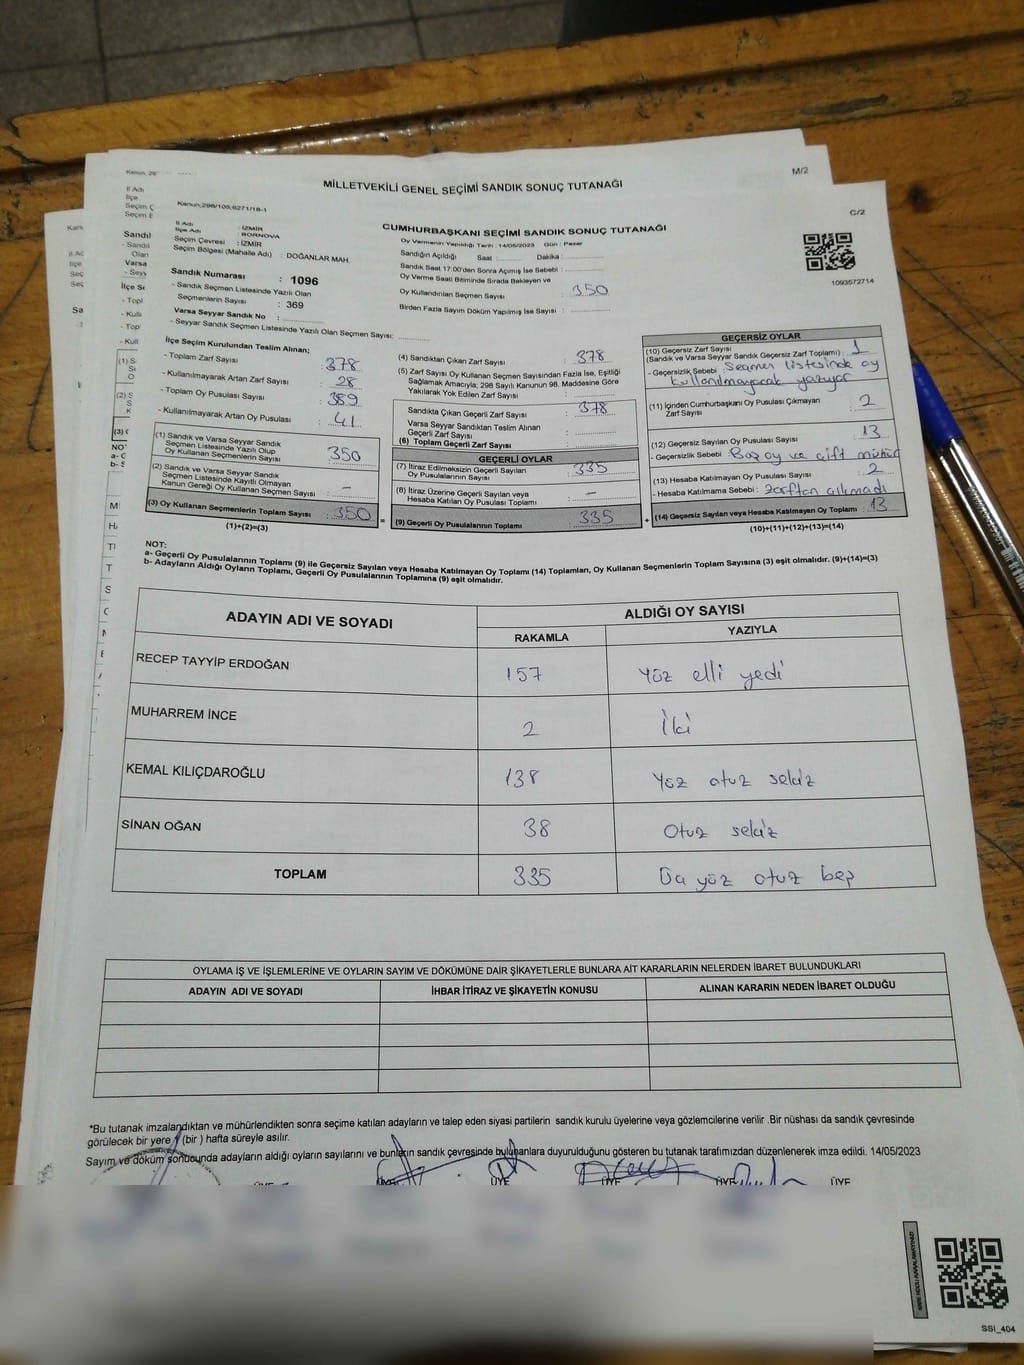 M/2
MİLLETVEKİLİ GENEL SEÇİMİ SANDIK SONUÇ TUTANAĞI
Kanun,298/105,6271/18-1
C/2
CUMHURBAŞKANI SEÇİMİ SANDIK SONUÇ TUTANAĞI
İl Adı : İZMİR
İlçe Adı : BORNOVA
Seçim Çevresi : İZMİR
Seçim Bölgesi (Mahalle Adı) : DOĞANLAR MAH.
Sandık Numarası : 1096
- Sandık Seçmen Listesinde Yazılı Olan
Seçmenlerin Sayısı : 369
Varsa Seyyar Sandık No :
- Seyyar Sandık Seçmen Listesinde Yazılı Olan Seçmen Sayısı:
Oy Vermenin Yapıldığı Tarih : 14/05/2023 Gün : Pazar
Sandığın Açıldığı Saat : Dakika :
Sandık Saat 17.00'den Sonra Açılmış İse Sebebi :
Oy Verme Saati Bitiminde Sırada Bekleyen ve
Oy Kullandırılan Seçmen Sayısı : 350
Birden Fazla Sayım Döküm Yapılmış İse Sayısı :
1093572714
İlçe Seçim Kurulundan Teslim Alınan;
- Toplam Zarf Sayısı : 378
- Kullanılmayarak Artan Zarf Sayısı : 28
- Toplam Oy Pusulası Sayısı : 389
- Kullanılmayarak Artan Oy Pusulası : 41
(1) Sandık ve Varsa Seyyar Sandık
Seçmen Listesinde Yazılı Olup
Oy Kullanan Seçmenlerin Sayısı : 350
(2) Sandık ve Varsa Seyyar Sandık
Seçmen Listesinde Kayıtlı Olmayan
Kanun Gereği Oy Kullanan Seçmen Sayısı : -
(3) Oy Kullanan Seçmenlerin Toplam Sayısı : 350
(1)+(2)=(3)
(4) Sandıktan Çıkan Zarf Sayısı : 378
(5) Zarf Sayısı Oy Kullanan Seçmen Sayısından Fazla İse, Eşitliği
Sağlamak Amacıyla; 298 Sayılı Kanunun 98. Maddesine Göre
Yakılarak Yok Edilen Zarf Sayısı :
Sandıkta Çıkan Geçerli Zarf Sayısı : 378
Varsa Seyyar Sandıktan Teslim Alınan
Geçerli Zarf Sayısı :
(6) Toplam Geçerli Zarf Sayısı :
GEÇERLİ OYLAR
(7) İtiraz Edilmeksizin Geçerli Sayılan
Oy Pusulalarının Sayısı : 335
(8) İtiraz Üzerine Geçerli Sayılan veya
Hesaba Katılan Oy Pusulası Toplamı : -
(9) Geçerli Oy Pusulalarının Toplamı : 335
GEÇERSİZ OYLAR
(10) Geçersiz Zarf Sayısı
(Sandık ve Varsa Seyyar Sandık Geçersiz Zarf Toplamı) : 1
- Geçersizlik Sebebi : Seçmen listesinde oy
kullanılmayarak yazıyor
(11) İçinden Cumhurbaşkanı Oy Pusulası Çıkmayan
Zarf Sayısı : 2
(12) Geçersiz Sayılan Oy Pusulası Sayısı : 13
- Geçersizlik Sebebi : Boş oy ve çift mühür
(13) Hesaba Katılmayan Oy Pusulası Sayısı : 2
- Hesaba Katılmama Sebebi : zarftan çıkmadı
(14) Geçersiz Sayılan veya Hesaba Katılmayan Oy Toplamı : 13
(10)+(11)+(12)+(13)=(14)
NOT:
a- Geçerli Oy Pusulalarının Toplamı (9) ile Geçersiz Sayılan veya Hesaba Katılmayan Oy Toplamı (14) Toplamları, Oy Kullanan Seçmenlerin Toplam Sayısına (3) eşit olmalıdır. (9)+(14)=(3)
b- Adayların Aldığı Oyların Toplamı, Geçerli Oy Pusulalarının Toplamına (9) eşit olmalıdır.
ADAYIN ADI VE SOYADI ALDIĞI OY SAYISI
RAKAMLA YAZIYLA
RECEP TAYYİP ERDOĞAN 157 Yüz elli yedi
MUHARREM İNCE 2 İki
KEMAL KILIÇDAROĞLU 138 Yüz otuz sekiz
SİNAN OĞAN 38 Otuz sekiz
TOPLAM 335 Üç yüz otuz beş
OYLAMA İŞ VE İŞLEMLERİNE VE OYLARIN SAYIM VE DÖKÜMÜNE DAİR ŞİKAYETLERLE BUNLARA AİT KARARLARIN NELERDEN İBARET BULUNDUKLARI
ADAYIN ADI VE SOYADI İHBAR İTİRAZ VE ŞİKAYETİN KONUSU ALINAN KARARIN NEDEN İBARET OLDUĞU
*Bu tutanak imzalandıktan ve mühürlendikten sonra seçime katılan adayların ve talep eden siyasi partilerin sandık kurulu üyelerine veya gözlemcilerine verilir .Bir nüshası da sandık çevresinde
görülecek bir yere 1 (bir ) hafta süreyle asılır.
Sayım ve döküm sonucunda adayların aldığı oyların sayılarını ve bunların sandık çevresinde bulunanlara duyurulduğunu gösteren bu tutanak tarafımızdan düzenlenerek imza edildi. 14/05/2023
ÜYE ÜYE ÜYE ÜYE
SSI_404